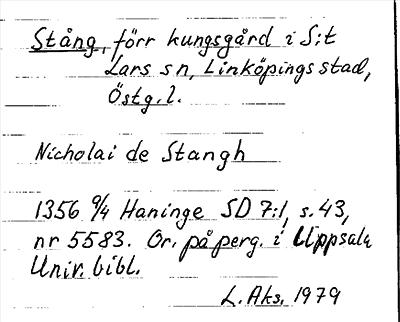 Stång, förr kungsgård i S:t
Lars sn, Linköpings stad,
Östg.l.
Nicholai de Stangh
1356 9/4 Haninge SD 7:1, s. 43,
nr 5583. Or. på perg. i Uppsala
Univ. bibl.
L. Aks. 1979